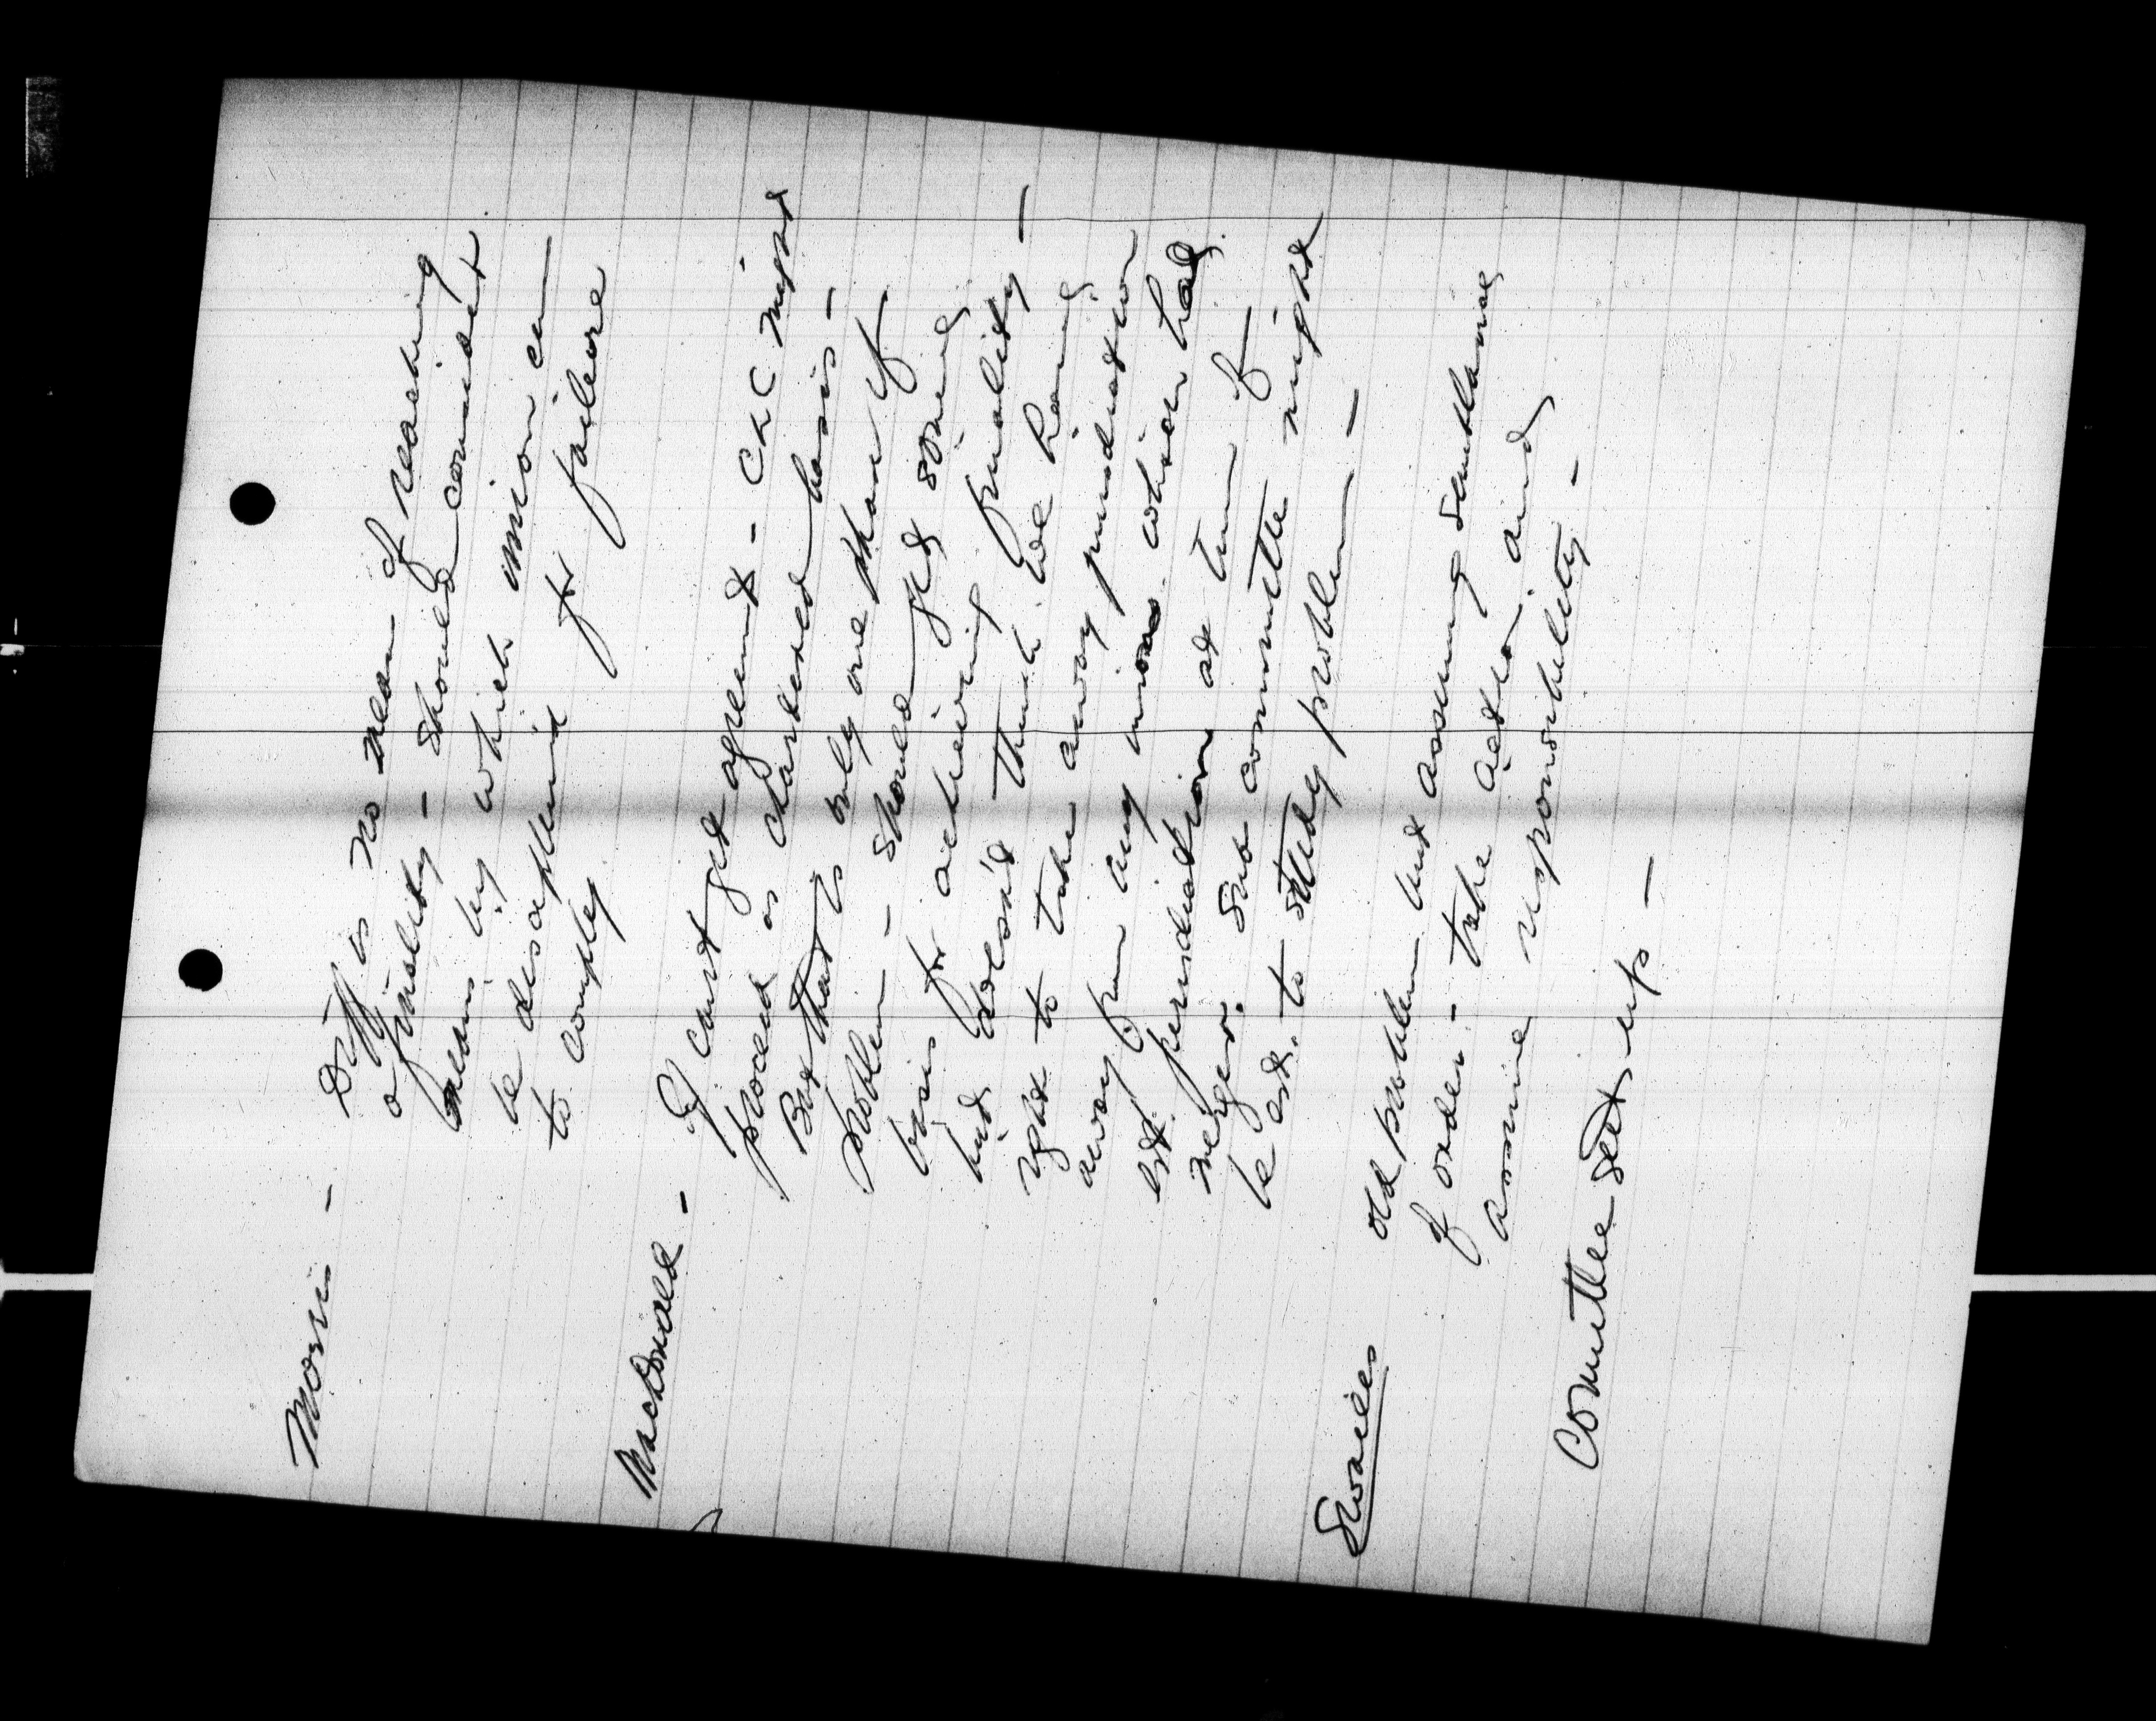 Morris - Diff is no mean of reaching
a finality - should consider
means by which union can
be disciplined for failure
to comply
MacDonald - If can't get agreement - CLC might
proceed on chartered basis -
But that is only one phase of
problem - should get some
basis for achieving finality -
but doesn't think we have
right to take away jurisdiction
away from any union which had
est. jurisdiction at time of
merger. Sub committee might
be est. to study problem -
Swailes old problem but assuming semblance
of order - take action and
assume responsibility -
Committee set up -